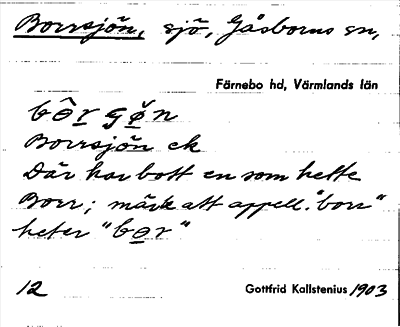 Borrsjön, sjö, Gåsborns sn,
Färnebo hd, Värmlands län
Borrsjön ek
Där har bott en som hette
Borr; märk att appell. "borr"
heter
12 Gottfrid Kallstenius 1903